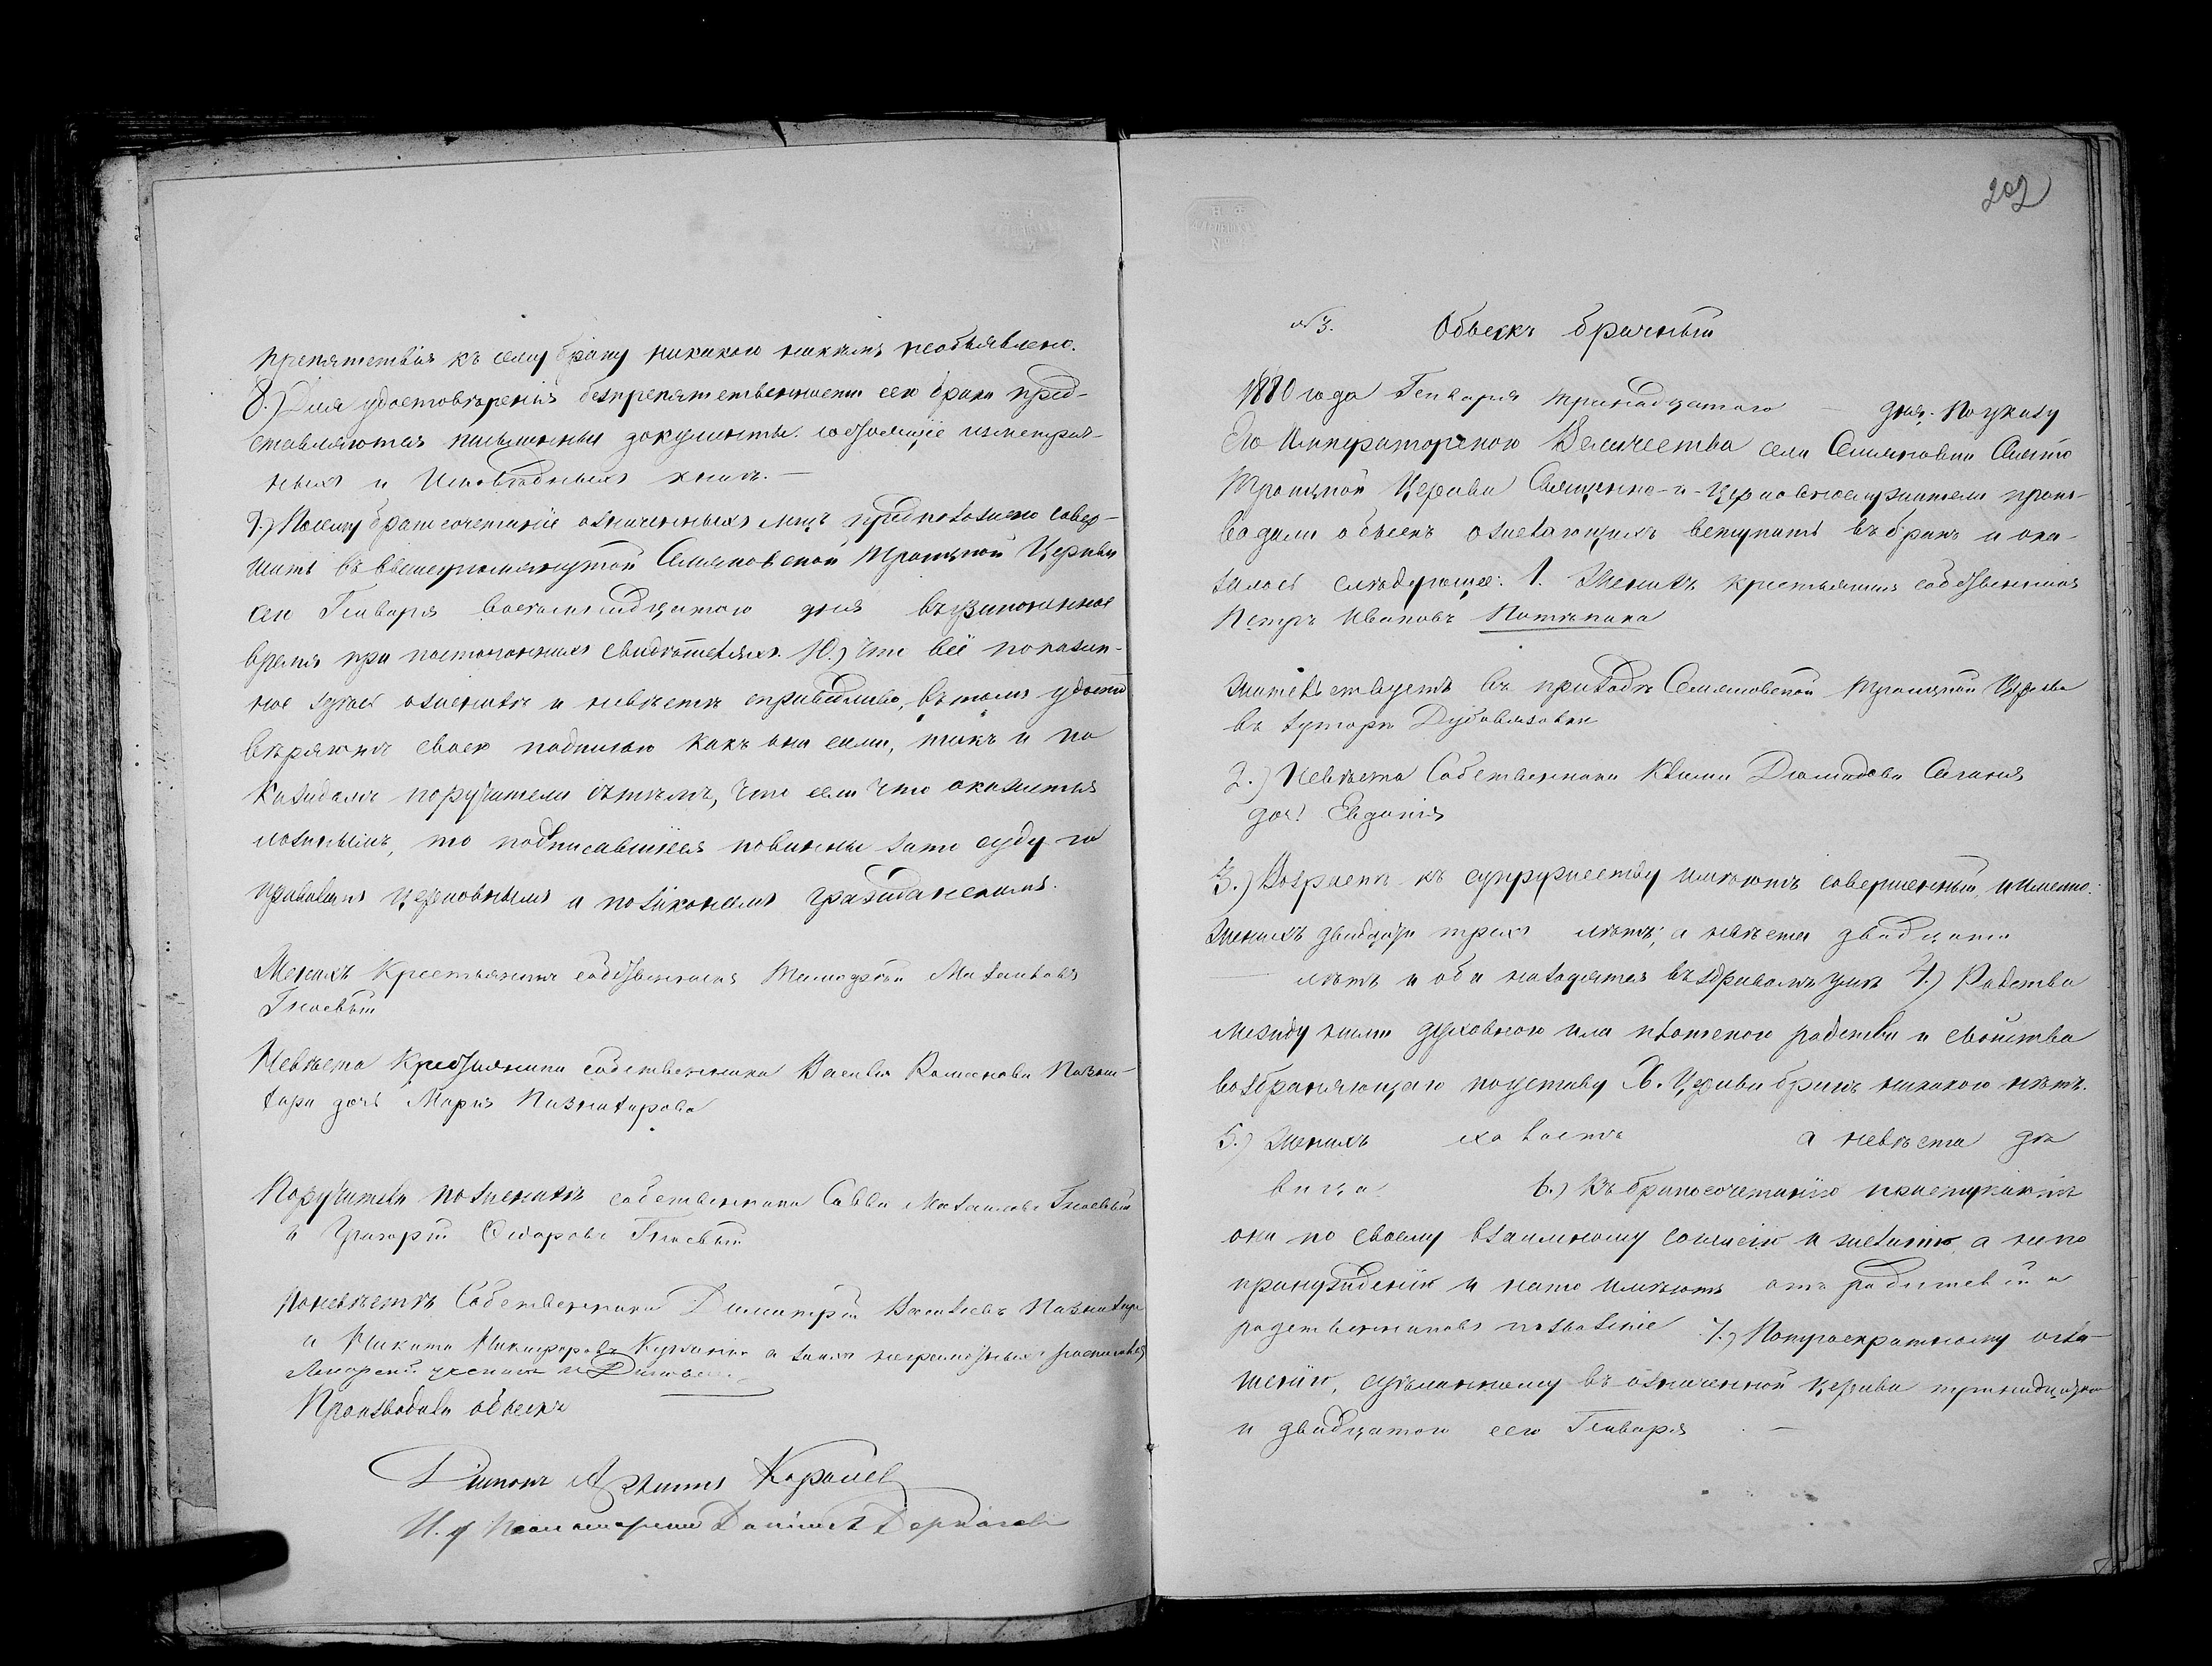 препятствія къ сему браку никакого никѣмъ необъявлено.
8.) Для удостовѣренія безпрепятственности сего брака пред-
ставляются письменные документы: изъ метрич-
ныхъ и Исповѣдныхъ книгъ. —
9.) Посему бракосочетаніе означенныхъ лицъ предположено совер-
шить въ вышеупомянутой Семяновской Троицкой Церкви
сего Генваря дня въ узаконенное
время при постороннихъ свидѣтеляхъ. 10.) Что всё показан-
ное здѣсь о женихѣ и невѣстѣ справедливо, въ томъ удосто
вѣряютъ своею подписью какъ они сами, такъ и по
каждомъ поручители съ тѣмъ, что если что окажется
ложнымъ, то подписавшіеся повинны зато суду по
правиламъ церковнымъ и по законамъ гражданскимъ.
Женихъ Крестьянинъ собственникъ
Гноевый
Невѣста Крестьянина собственника Василія Романова
дочь Марія
Поручители по женихѣ собственники Савва Гноевый
и Григорій Сидоровъ Гноевый
По невѣстѣ Собственники Димитрій
и Никита Никифоровъ а за нихъ неграмотныхъ росписался
Производили обыскъ
Діаконъ
И. д. Пономаря Даніилъ
202
№3. Обыскъ брачный
1880 года Генваря тринадцатого — дня. По указу
Его Императорского Величества села Семяновки Свято
Троицкой Церкви Священно-и-Церковнослужители произ-
водили обыскъ о желающихъ вступить въ бракъ и ока-
залось слѣдующее: 1. Женихъ крестьянинъ собственникъ
Петръ Ивановъ
Жительствуетъ въ приходѣ Семяновской Троицкой Церкви
въ хуторѣ Дубовязовки
2.) Невѣста Собственника
дочь Евдокія
3.) Возрастъ къ супружеству имѣютъ совершенный, именно:
Женихъ двадцати трехъ лѣтъ, а невѣста двадцати
— лѣтъ и оба находятся въ здравомъ умѣ 4.) Родства
между ними духовного или плотского родства и свойства
возбраняющаго по уставу Х. Церкви бракъ никакого нѣтъ.
5.) Женихъ холостъ а невѣста дѣ
вица. 6.) Къ бракосочетанію приступаютъ
они по своему взаимному согласію и желанію, а не по
принужденію и на то имѣютъ отъ родителей и
родственниковъ позволеніе 7.) По троекратному огла-
шенію, сдѣланному въ означенной Церкви
и двадцатого сего Генваря —